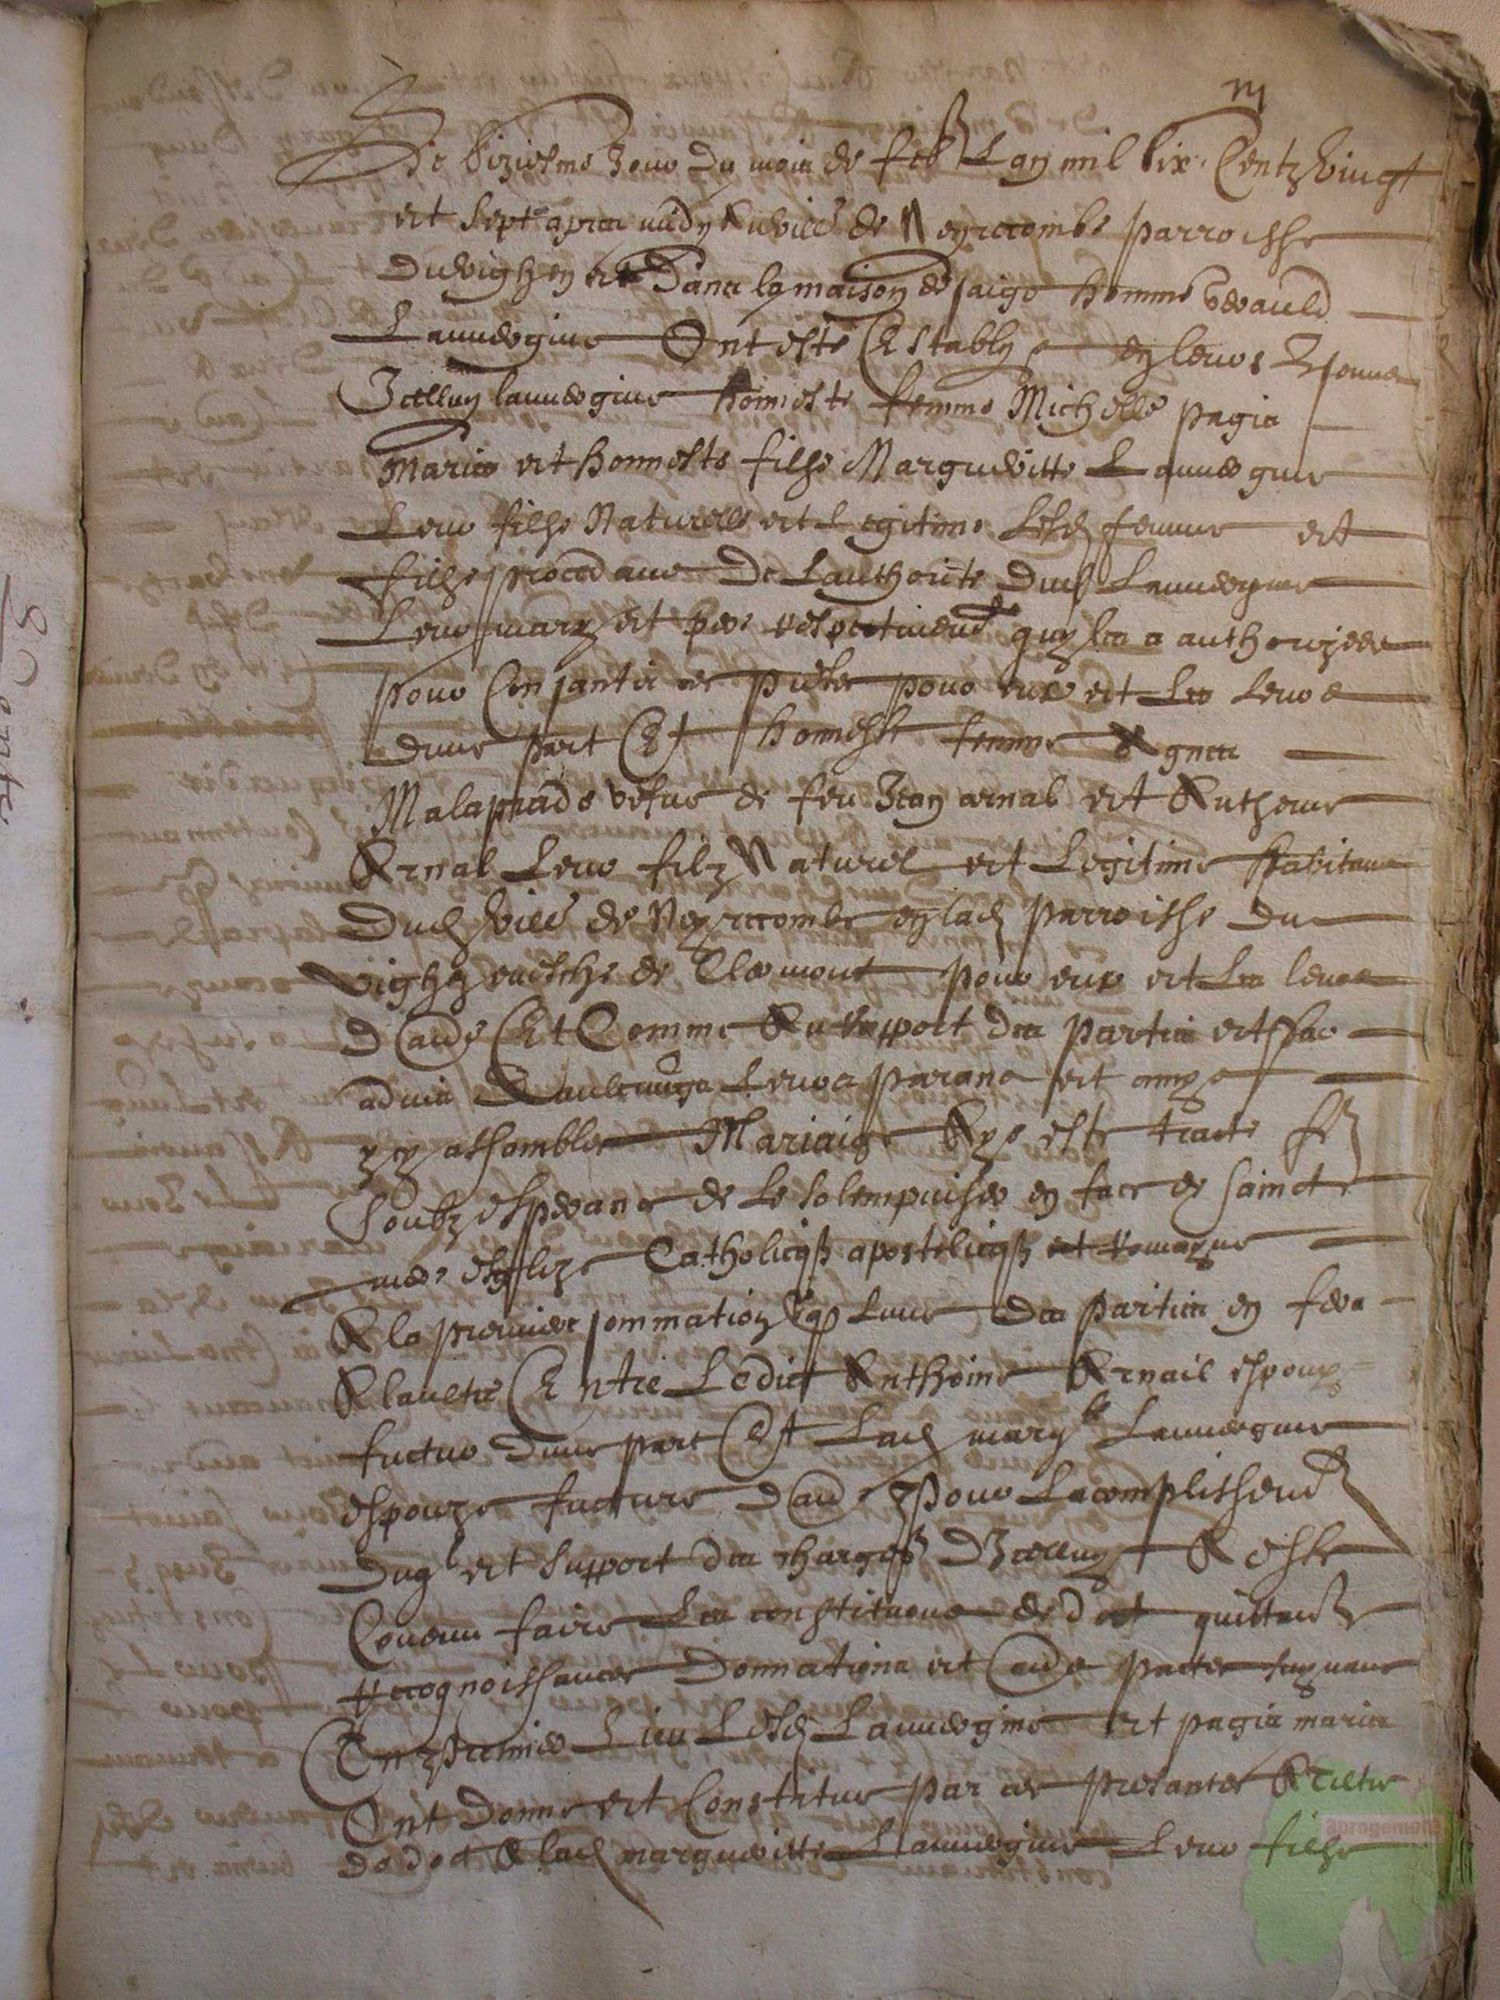 m
Le siziesme Jour du mois de feb Lan mil six Centz vingt
et sept apres midy Au viell de Neyrecombe parroisse
du vighen et Dans la maison de saige homme
Lauvergine Ont este Establys en leurs personnes
Icelluy lauvergine honneste femme Michelle pagis
Mariés et honneste filhe Margueritte Lauvergine
Leur filhe Naturelle et Legitime Lesd femme et
filhe procedans De Lauthorite dud Lauvergine
Leur mary et pere respectivem quy les a authorizees
pour Consantir ces pactes pour eux et Les Leurs
dune part Et honneste femme Agnes
Malaprade vefve de feu Jean arnal et Anthoine
Arnal Leur filz Naturel et Legitime habitans
Dud viell de Neyrecombe en lad parroisse du
vighen evesche de Clermont pour eux et Les leurs
D aude Et Comme Au rapport des parties et par
advis Daulcungs Leurs parans et amys
ycy assembles Mariaige Aye este traicte
soubz esperance de Le solempniser en face de saincte
mere esglize Catholicq apostolicq et romayne
A la premiere sommation que Lune des parties en fera
A laultre Entre Ledict Anthoine Arnail espoux
futur dune part Et Lad marg Lauvergine
espouze future D aude Pour Lacomplissem
Duq et support des charges Dicelluy A este
Convenu faire Les constitutions de dot quittances
recognoissances Donnations et aude pactes suyvans
En Premier Lieu Lesd Lauvergine et pagis maries
Ont Donne et Constitue par ces presantes A tiltre
de dot A lad margueritte Lauvergine Leur filhe
apragement